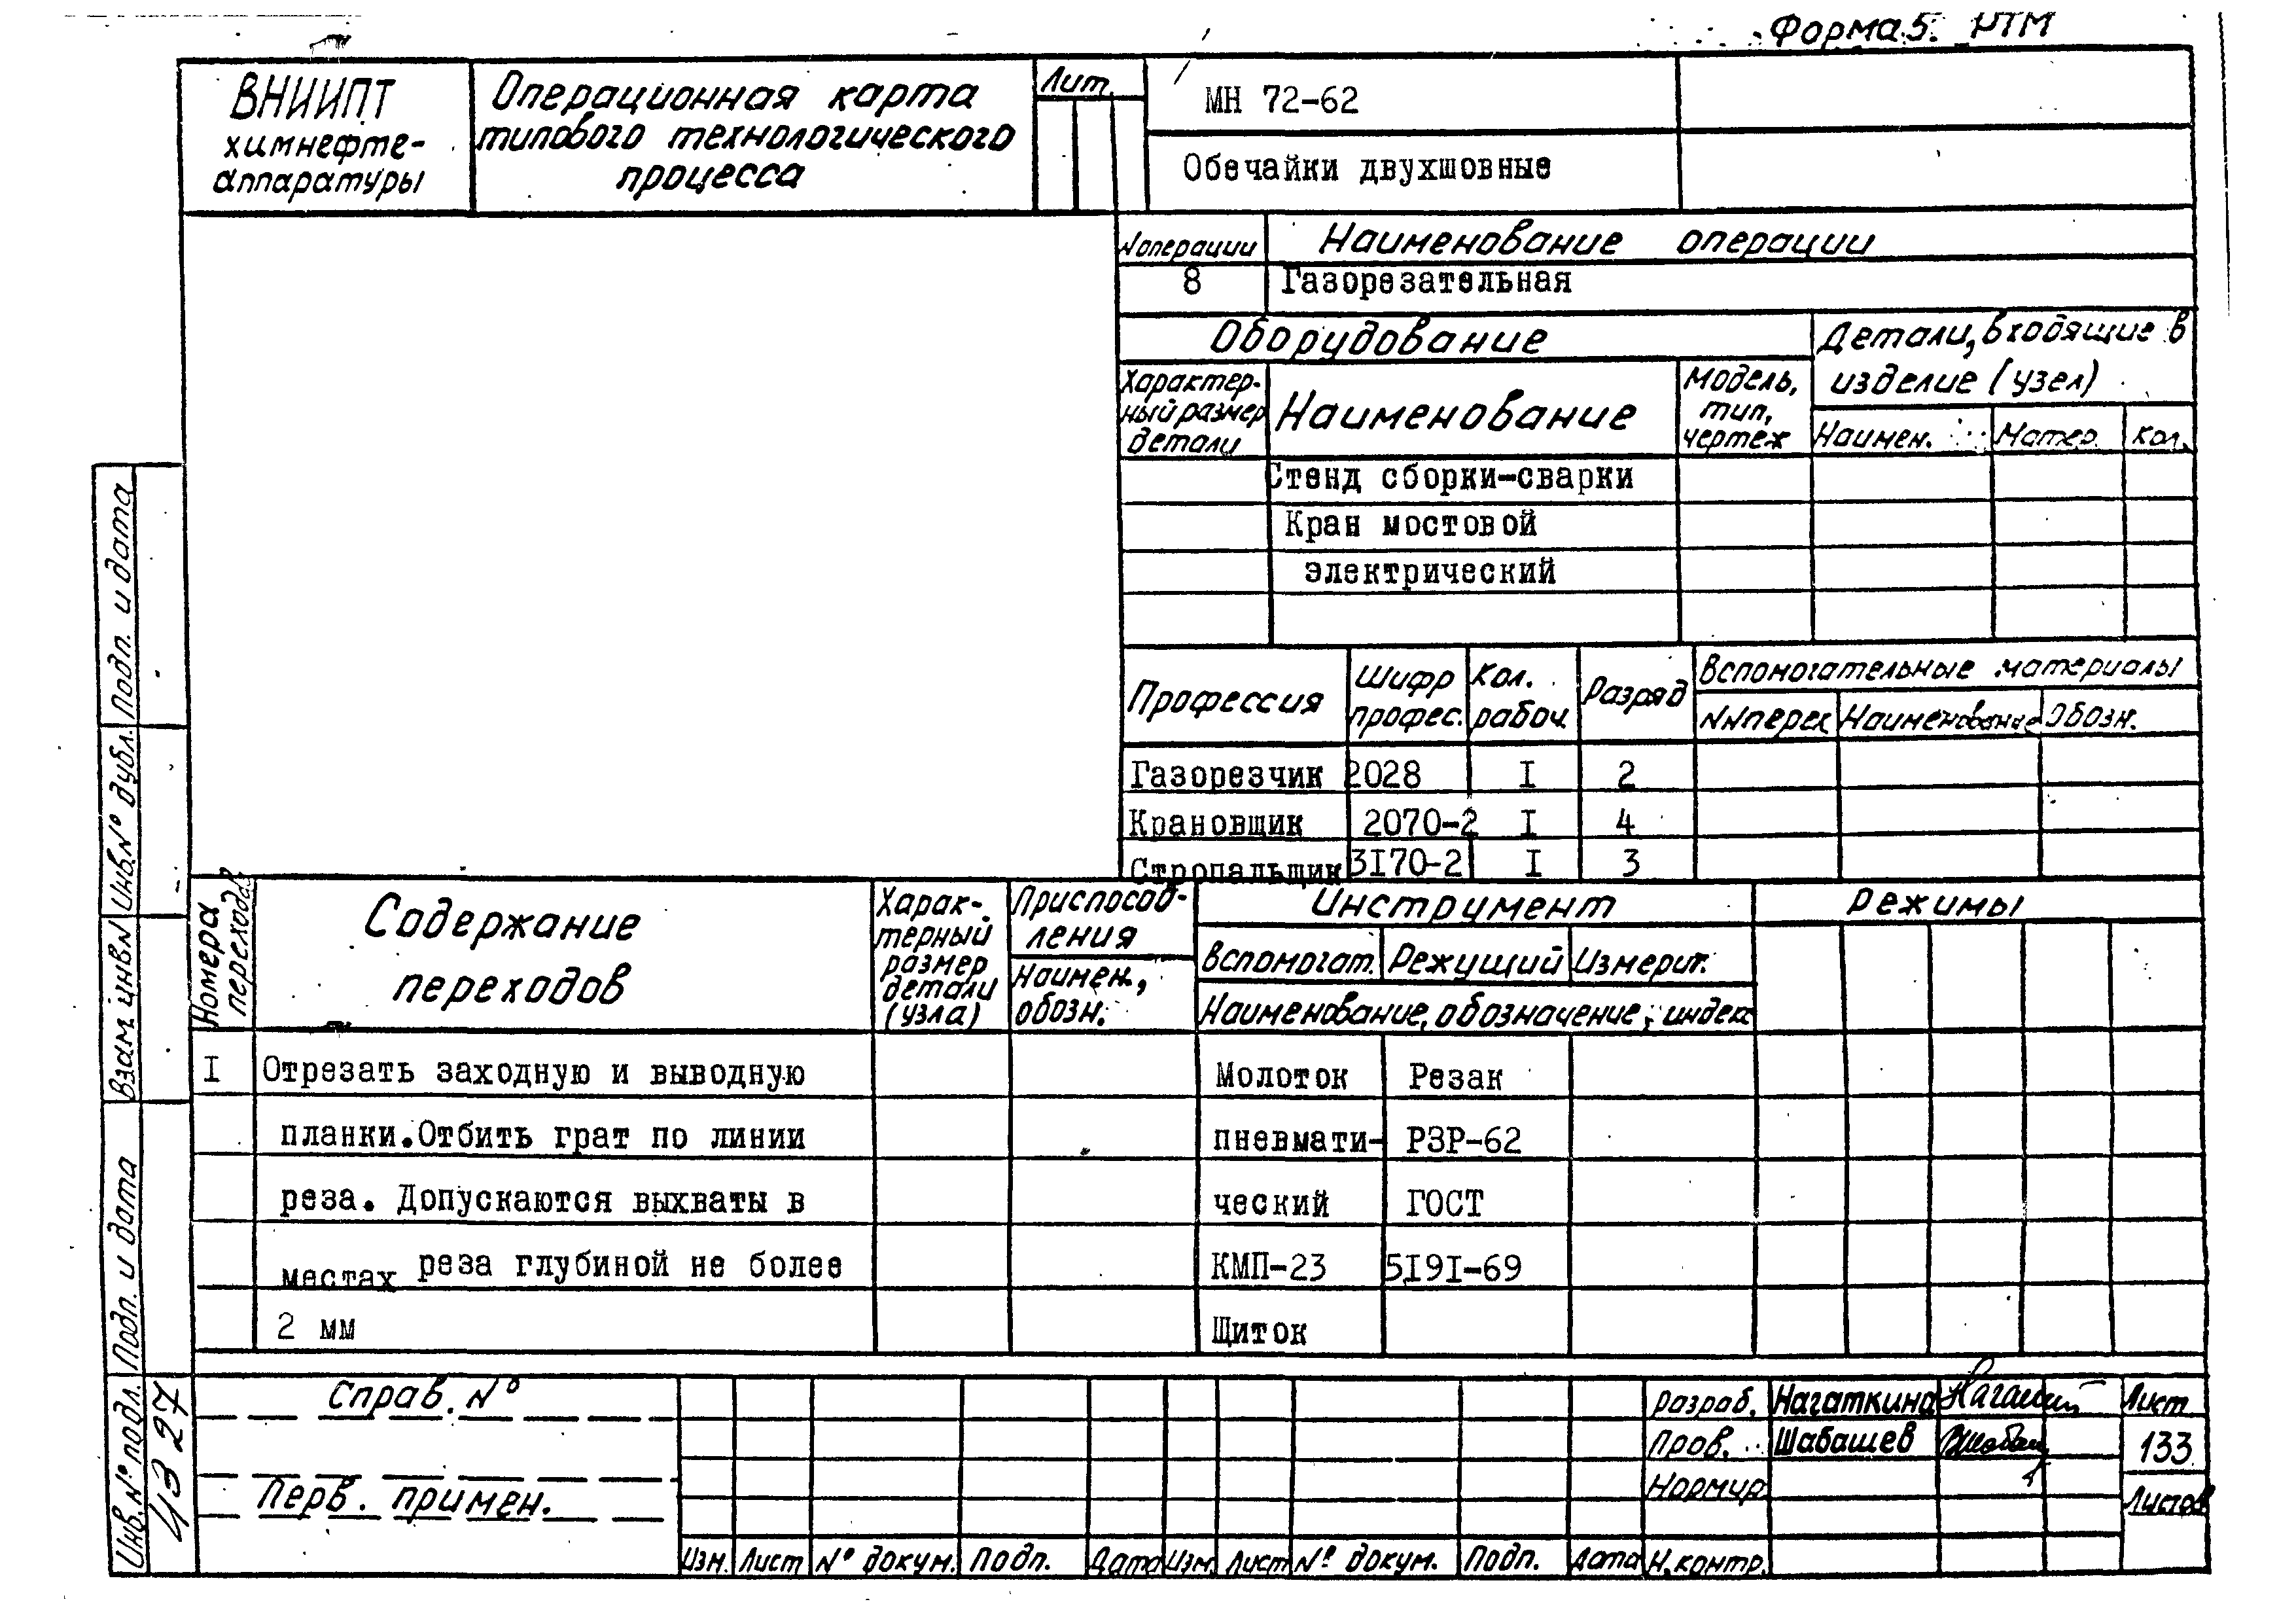 Форма 5. РТМ
ВНИИПТ
химнефте-
аппаратуры
Операционная карта
типового технологического
процесса
Лит.
МН 72-62
Обечайки двухшовные
№операции
Наименование операции
8
Газорезательная
Оборудование
Детали, входящие в
изделие (узел)
Характер-
ный размер
детали
Наименование
Модель,
тип,
чертеж
Наимен.
Матер.
Кол.
Стенд сборки-сварки
Кран мостовой
электрический
Профессия
Шифр
профес.
Кол.
рабоч.
Разряд
Вспомогательные материалы
№№перех
Наименование
Обозн.
Газорезчик 2028 I 2
Крановщик 2070-2 I 4
Стропальщик 3I70-2 I 3
Номера
переходов
Содержание
переходов
Харак-
терный
размер
детали
(узла)
Приспособ-
ления
Наимен.,
обозн.
Инструмент
Режимы
Вспомогат.
Режущий
Измерит.
Наименование, обозначение, индекс
I Отрезать заходную и выводную Молоток Резак
планки.Отбить грат по линии пневмати- РЗР-62
реза. Допускаются выхваты в ческий ГОСТ
местах реза глубиной не более КМП-23 5I9I-69
2 мм Щиток
Подп. и дата
Инв.№ дубл.
Взам. инв.№
Подп. и дата
Инв.№ подл.
4327
Справ. №
Перв. примен.
Разраб. Нагаткина
Пров. Шабашев
Нормир.
Лист
133
Листов
Изм. Лист № докум. Подп. Дата Изм. Лист № докум. Подп. Дата Н.контр.